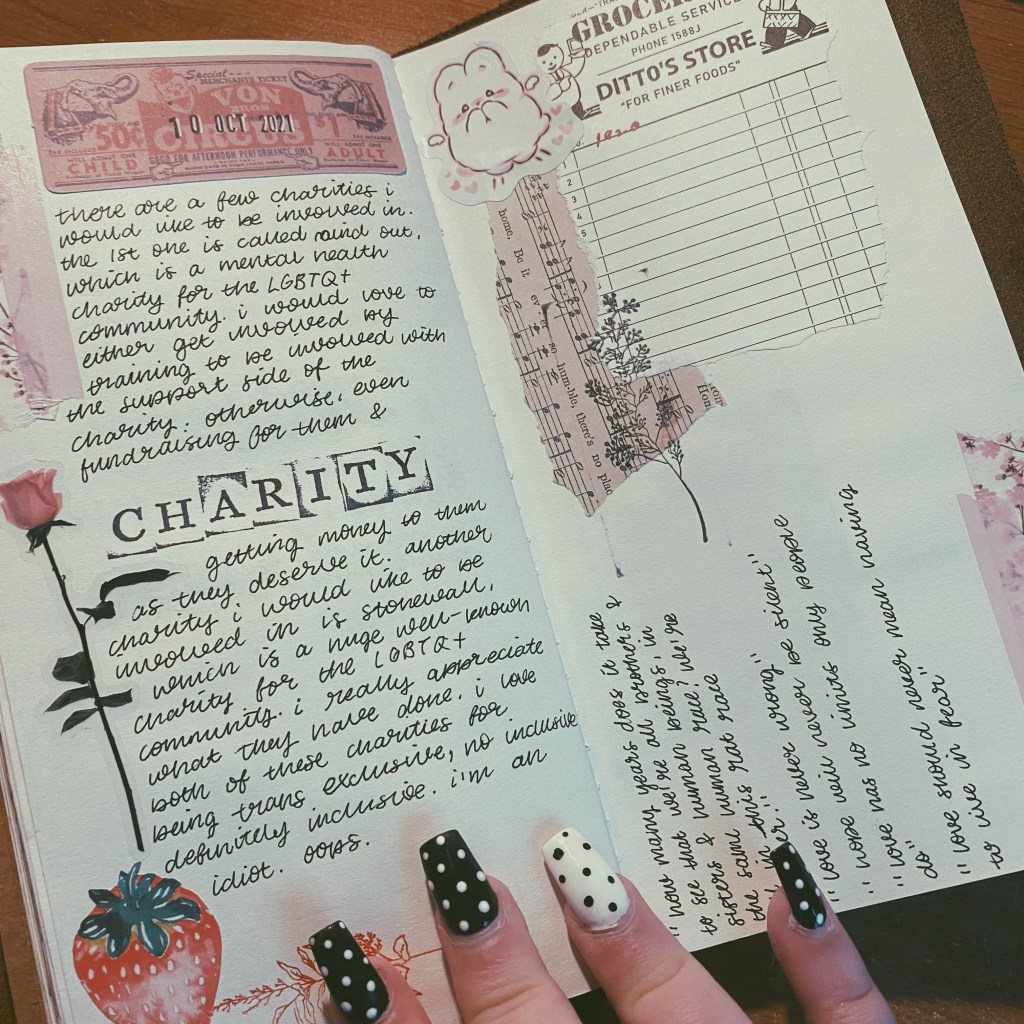 Special
MERCHANTS TICKET
VON
BROS
CIRCUS
50¢
$1
10 OCT 2021
WILL ADMIT ONE
CHILD
GOOD FOR AFTERNOON PERFORMANCE ONLY
WILL ADMIT ONE
ADULT
there are a few charities i
would like to be involved in.
the 1st one is called mind out,
which is a mental health
charity for the LGBTQ+
community. i would love to
either get involved by
training to be involved with
the support side of the
charity. otherwise, even
fundraising for them &
CHARITY
getting money to them
as they deserve it. another
charity i would like to be
involved in is stonewall,
which is a huge well-known
charity for the LGBTQ+
community. i really appreciate
what they have done. i love
both of these charities for
being trans exclusive, no inclusive
definitely inclusive. i'm an
idiot. oops.
GROCER
DEPENDABLE SERVICE
PHONE 1588J
DITTO'S STORE
"FOR FINER FOODS"
2
3
4
5
6
7
8
9
10
home, Be it ev so hum-ble, there's no plac
Hom
"how many years does it take
to see that we're all brothers &
sisters & human beings, in
the human race? we're
the same this rat race
"love is never wrong"
"love will never be silent"
"hope has no limits only people
do"
"love should never mean having
to live in fear"